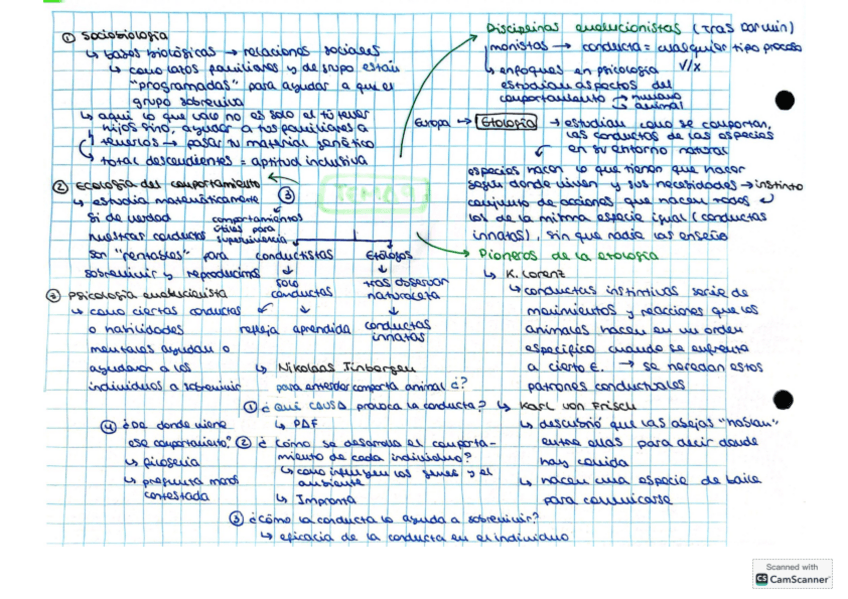 ① Sociobiología
↳ bases biológicas → relaciones sociales
↳ como lazos familiares y de grupo están
"programadas" para ayudar a que el
grupo sobreviva
↳ aquí lo que vale no es solo el tú tener
hijos sino, ayudar a tus familiares a
tenerlos → pasar tu material genético
↳ total descendientes = aptitud inclusiva
② Ecología del comportamiento
↳ estudia matemáticamente
si de verdad
nuestras conductas
son "rentables" para
sobrevivir y reproducirnos
③ Psicología evolucionista
↳ como ciertas conductas
o habilidades
mentales ayudan o
ayudaron a los
individuos a sobrevivir
TEMA 9
③
comportamientos
útiles para
supervivencia
conductistas
↓
solo
conductas
refleja aprendida
Etólogos
↓
tras observar
naturaleza
↓
conductas
innatas
Disciplinas evolucionistas (tras Darwin)
monistas → conducta = cualquier tipo proceso
v/x
↳ enfoques en psicología
estudian aspectos del
comportamiento → humano
→ animal
Europa → Etología → estudian como se comportan,
las conductas de las especies
en su entorno natural
especies hacen lo que tienen que hacer
según donde viven y sus necesidades → instinto
conjunto de acciones que hacen todos
los de la misma especie igual (conductas
innatas), sin que nadie las enseñe
Pioneros de la etología
↳ K. Lorenz
↳ conductas instintivas serie de
movimientos y reacciones que los
animales hacen en un orden
específico cuando se enfrenta
a cierto E. → se heredan estos
patrones conductuales
↳ Karl von Frisch
↳ descubrió que las abejas "hablan"
entre ellas para decir donde
hay comida
↳ hacen una especie de baile
para comunicarse
↳ Nikolaas Tinbergen
para entender comporta animal ¿?
① ¿Qué causa provoca la conducta?
↳ PAF
② ¿Cómo se desarrolla el comporta-
miento de cada individuo?
↳ como influyen los genes y el
ambiente
↳ Impronta
③ ¿Cómo la conducta lo ayuda a sobrevivir?
↳ eficacia de la conducta en el individuo
④ ¿De donde viene
ese comportamiento?
↳ filogenia
↳ pregunta menos
contestada
Scanned with
CS CamScanner